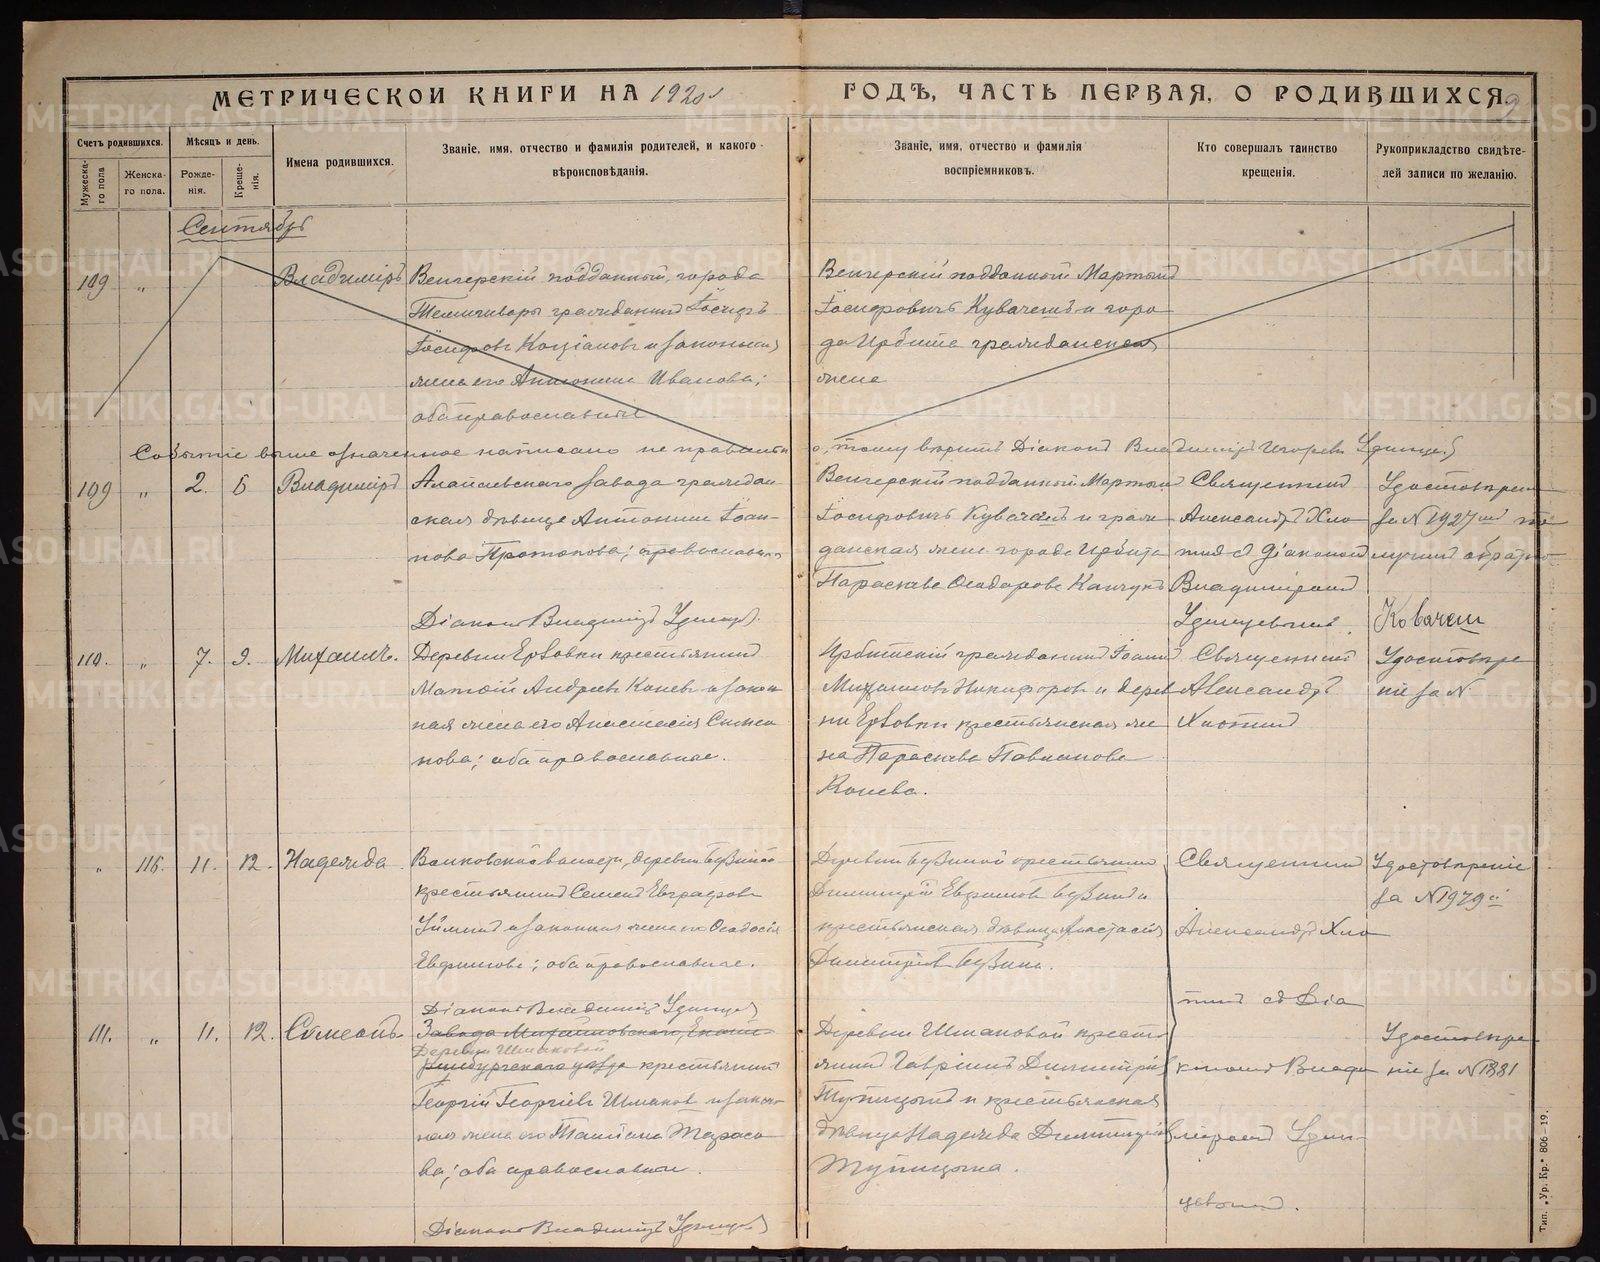 МЕТРИЧЕСКОЙ КНИГИ НА 1920 ГОДЪ, ЧАСТЬ ПЕРВАЯ, О РОДИВШИХСЯ.
Счетъ родившихся.
Мужеска-го пола
Женска-го пола.
Мѣсяцъ и день.
Рожде-нія.
Креще-нія.
Имена родившихся.
Званіе, имя, отчество и фамилія родителей, и какого вѣроисповѣданія.
Званіе, имя, отчество и фамилія воспріемниковъ.
Кто совершалъ таинство крещенія.
Рукоприкладство свидѣте-лей записи по желанію.
Сентябрь
109 " Владимиръ
Венгерскій подданный, города
гражданинъ Іосифъ
Іосифовъ и законная
жена его Антонина Иванова;
оба православные
Венгерскій подданный Мартынъ
Іосифовичъ и горо
да Ирбита гражданская
жена
Событіе выше означенное написано не правильно, тому вѣритъ Діаконъ Владимиръ
109 " 2. 6 Владиміръ
Алапаевскаго завода граждан
ская дѣвица Антонина Іоан-
нова Протопопова; православная
Діаконъ Владимиръ Удинцевъ.
Венгерскій подданный Мартынъ
Іосифовичъ и граж
данская жена города Ирбита
Параскева Ѳеодорова
Священникъ
Александръ Хло
тинъ съ Діакономъ
Владиміромъ
Удинцевымъ.
Удостовѣрен
за №1927
обратно
Ковачеш
110. " 7. 9. Михаилъ.
Деревни Ерзовки крестьянинъ
Матѳій Андреевъ Коневъ и закон
ная жена его Анастасія Симео
нова; оба православные.
Ирбитскій гражданинъ Іоаннъ
Михаиловъ Никифоровъ и дерев
ни Ерзовки крестьянская же
на Параскева Павлинова
Конева.
Священникъ
Александръ
Хлотинъ
Удостовѣре
ніе за №
" 116. 11. 12. Надежда
Волковской волости, деревни Бузиной
крестьянинъ Семенъ Евграфовъ
и законная жена его Ѳеодосія
Евфимова; оба православные.
Діаконъ Владимиръ Удинцевъ
Деревни Бузиной крестьянинъ
Димитрій Евфимовъ Бузинъ и
крестьянская дѣвица Анастасія
Димитріева Бузина.
Священникъ
Александръ Хло
тинъ съ Діа
кономъ Влади
міромъ Удин-
цевымъ.
Удостовѣреніе
за №1979
111. " 11. 12. Сѵмеонъ
Завода Михайловскаго, Екате-
Деревни Шмаковой
ринбургскаго уѣзда крестьянинъ
Георгій Георгіевъ Шмаковъ и закон-
ная жена его Татіана Тарасо
ва; оба православные.
Діаконъ Владимиръ Удинцевъ
Деревни Шмаковой кресть-
янинъ Гавріилъ Димитріевъ
Тупицынъ и крестьянская
дѣвица Надежда Димитріев
Тупицына.
Удостовѣре
ніе за №1881
Тип. „Ур. Кр.“ 806—19.
METRIKI.GASO-URAL.RU